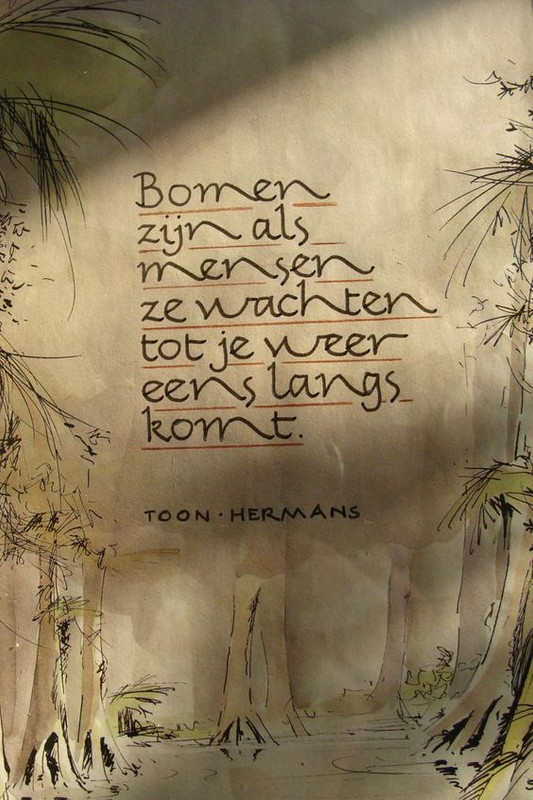 Bomen
zijn als
mensen
ze wachten
tot je weer
eens langs
komt.
TOON · HERMANS